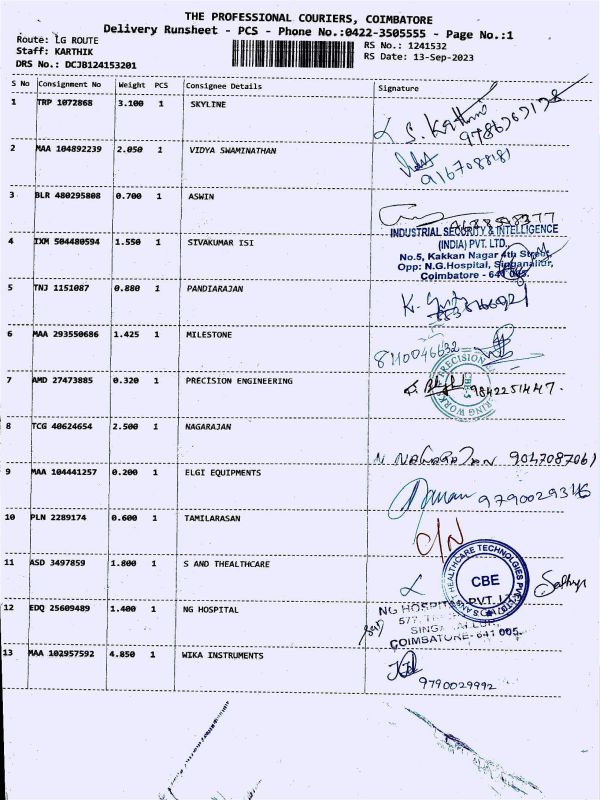 THE PROFESSIONAL COURIERS, COIMBATORE
Delivery Runsheet - PCS - Phone No.:0422-3505555 - Page No.:1
Route: LG ROUTE
RS No.: 1241532
Staff: KARTHIK
RS Date: 13-Sep-2023
DRS No.: DCJB124153201
S No Consignment No Weight PCS Consignee Details Signature
1 TRP 1072868 3.100 1 SKYLINE
2 MAA 104892239 2.050 1 VIDYA SWAMINATHAN
9167088181
3 BLR 480295808 0.700 1 ASWIN
INDUSTRIAL SECURITY & INTELLIGENCE
(INDIA) PVT. LTD.,
4 IXM 504480594 1.550 1 SIVAKUMAR ISI
No.5, Kakkan Nagar 4th Street,
Opp: N.G.Hospital, Singanallur,
Coimbatore - 641 005.
5 TNJ 1151087 0.880 1 PANDIARAJAN
6 MAA 293550686 1.425 1 MILESTONE
8110046632
7 AMD 27473885 0.320 1 PRECISION ENGINEERING
PRECISION
9842251447.
8 TCG 40624654 2.500 1 NAGARAJAN
N NAGARAJAN 9047087061
9 MAA 104441257 0.200 1 ELGI EQUIPMENTS
10 PLN 2289174 0.600 1 TAMILARASAN
C/N
11 ASD 3497859 1.800 1 S AND THEALTHCARE
CBE
12 EDQ 25609489 1.400 1 NG HOSPITAL
COIMBATORE- 641 005.
13 MAA 102957592 4.850 1 WIKA INSTRUMENTS
9790029992